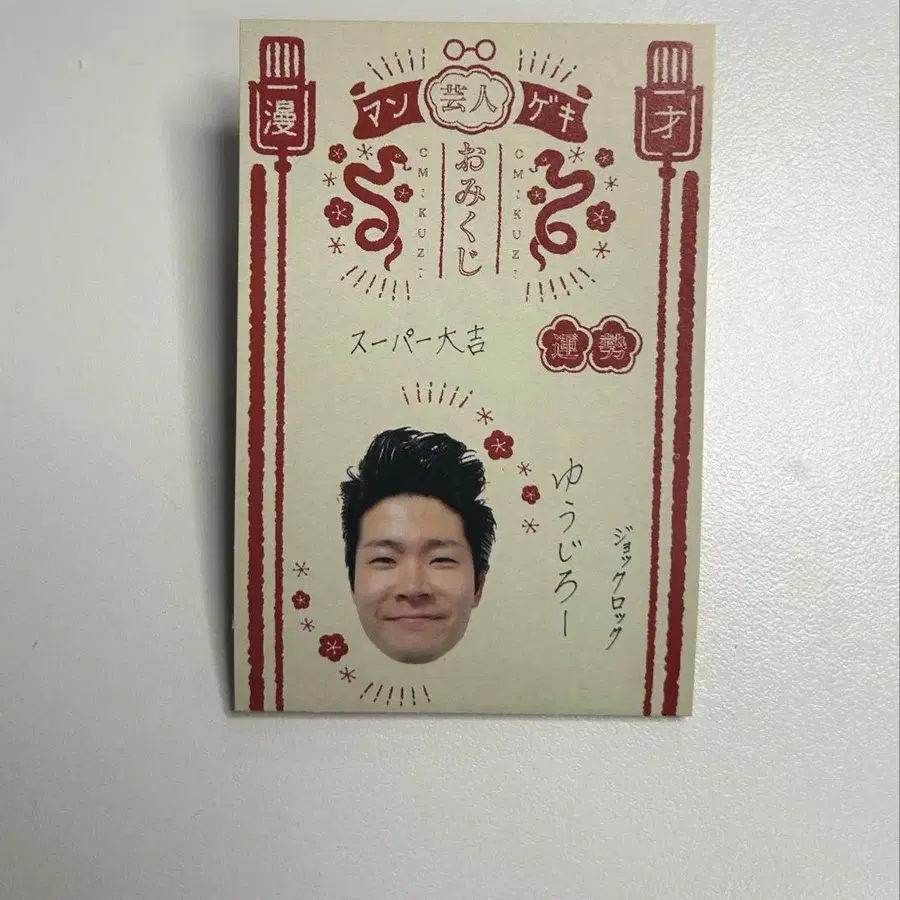 漫
才
マン芸人ゲキ
おみくじ
OMIKUZI
OMIKUZI
スーパー大吉
運勢
ジョックロック
ゆうじろー